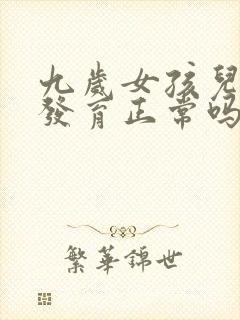 九歲女孩兒
發育正常吗
繁華錦世